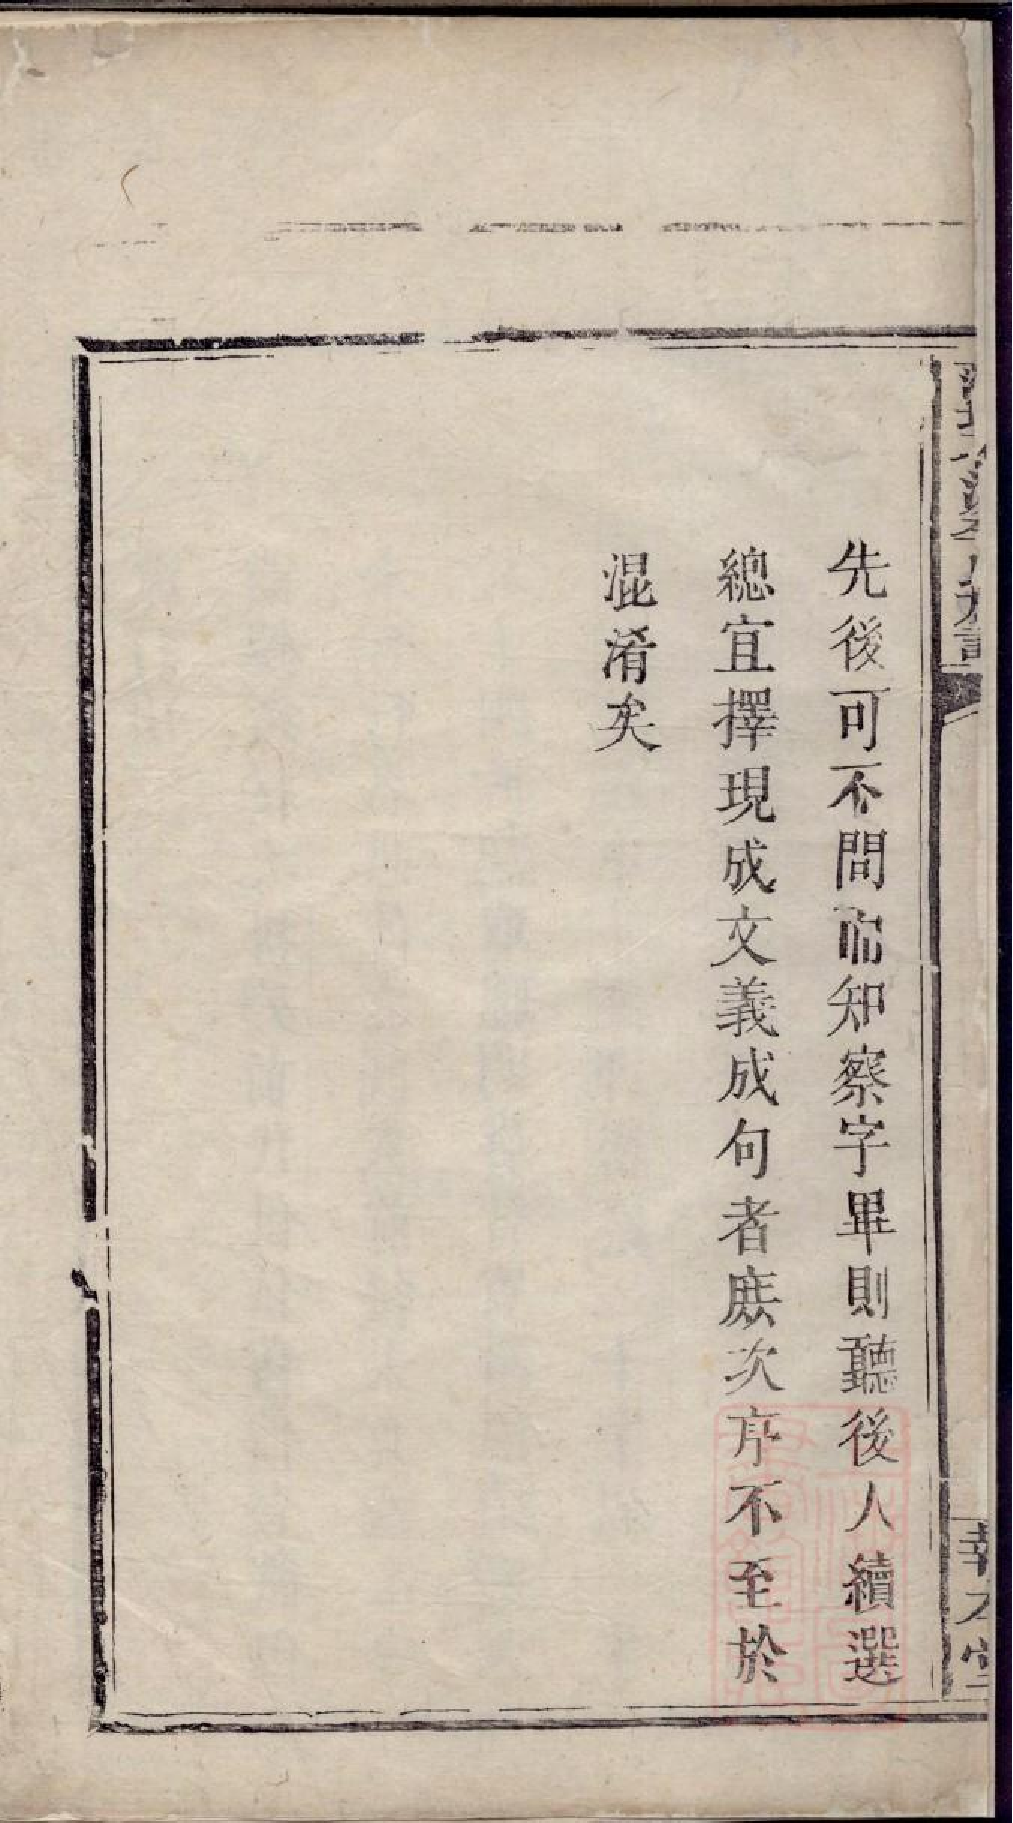 先後可不問知察字畢則聽後人續選
總宜擇現成文義成句者庶次序不至於
混淆矣